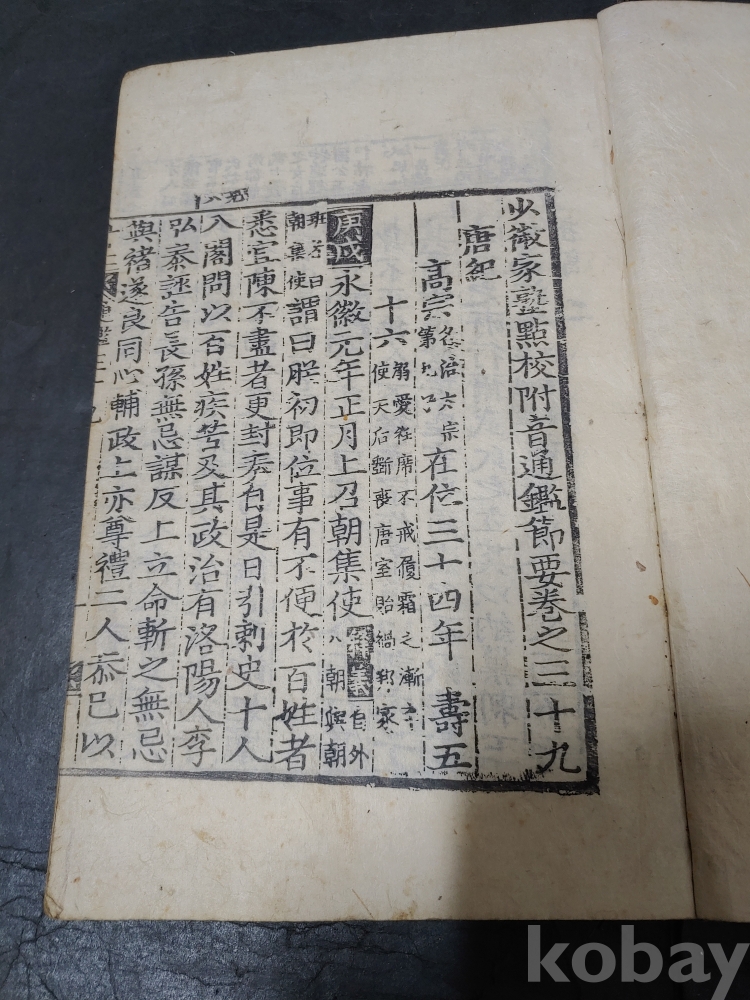 少微家塾點校附音通鑑節要卷之三十九
唐紀
高宗 名治太宗第九子 在位三十四年 壽五
十六 溺愛衽席不戒履霜之漸
使天后斲喪唐室貽禍邦家
庚戌 永徽元年正月上召朝集使 自外入朝與朝
班者曰朝集使 謂曰朕初即位事有不便於百姓者
悉宜陳不盡者更封奏自是日引刺史十人
入閤問以百姓疾苦及其政治有洛陽人李
弘泰誣告長孫無忌謀反上立命斬之無忌
與褚遂良同心輔政上亦尊禮二人恭己以
kobay